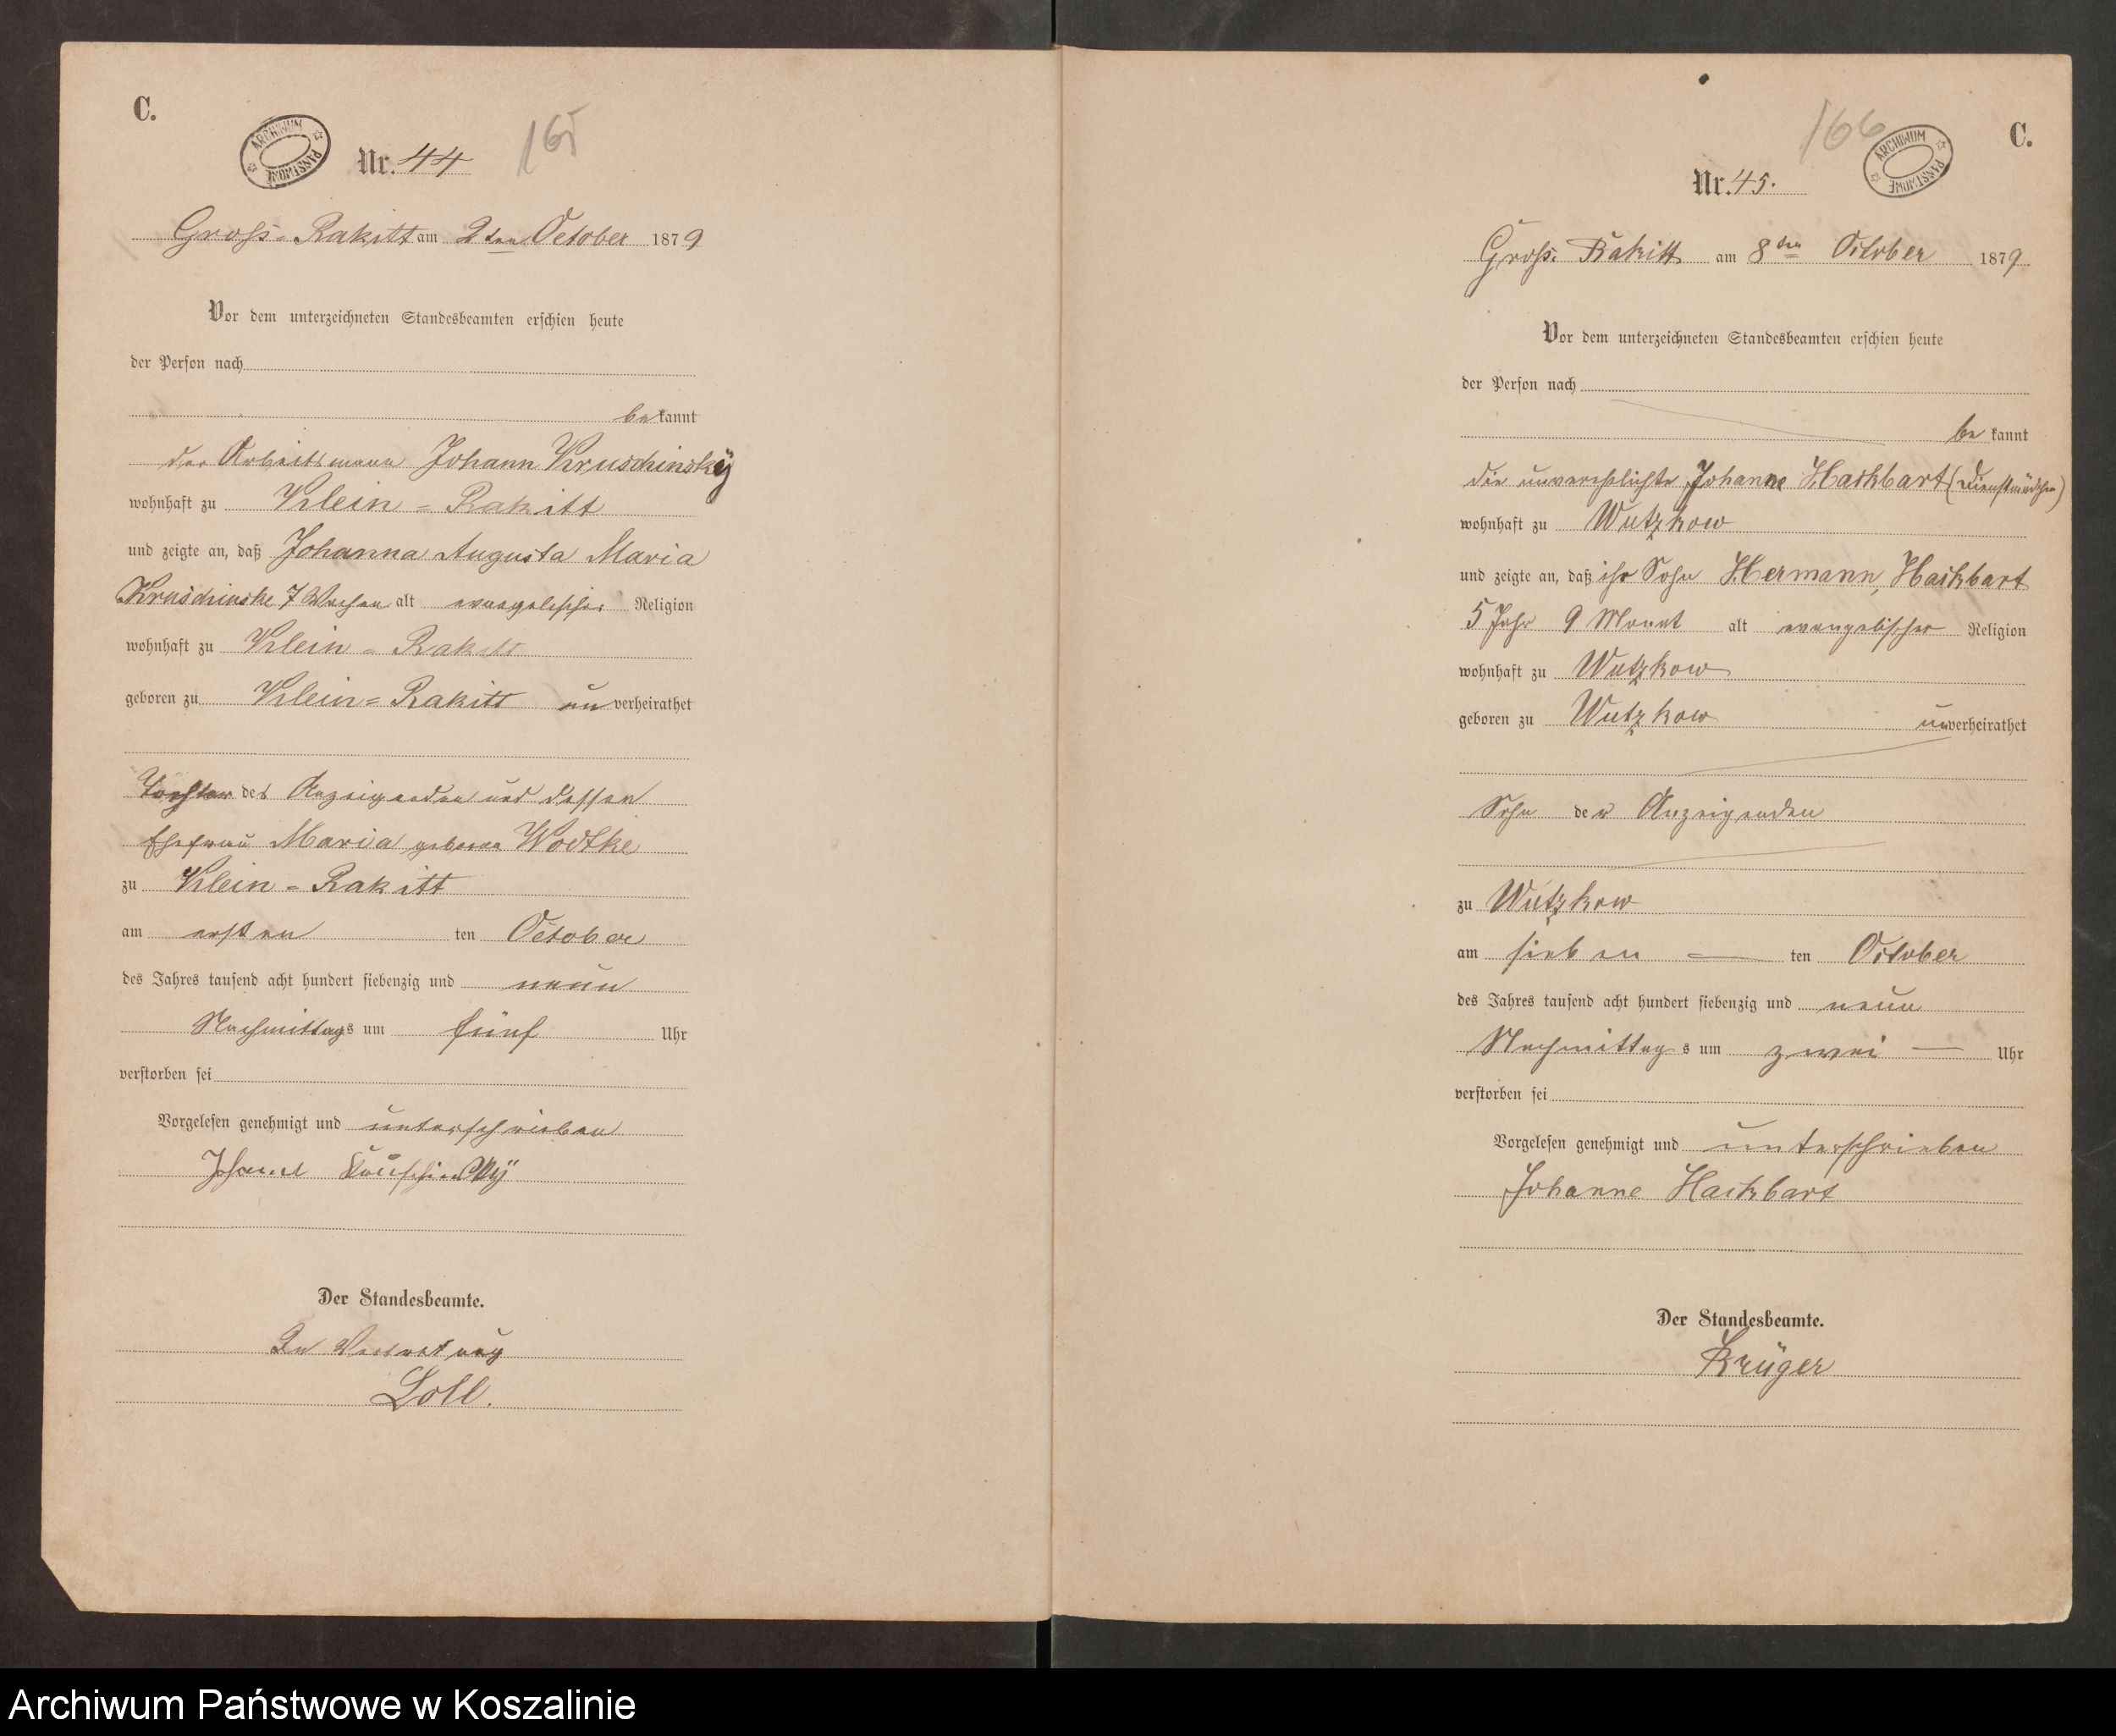 C.
ARCHIWUM PAŃSTWOWE
Nr. 44
165
Gross-Rakitt am 2ten October 1879
Vor dem unterzeichneten Standesbeamten erschien heute
der Person nach
bekannt
der Arbeitsmann Johann Kruschinsky
wohnhaft zu Klein-Rakitt
und zeigte an, daß Johanna Augusta Maria
Kruschinske 7 Wochen alt evangelischer Religion
wohnhaft zu Klein-Rakitt
geboren zu Klein=Rakitt unverheirathet
Tochter des Anzeigenden und dessen
Ehefrau Maria geborne Wodtke
zu Klein-Rakitt
am ersten ten October
des Jahres tausend acht hundert siebenzig und neun
Nachmittags um fünf Uhr
verstorben sei
Vorgelesen genehmigt und unterschrieben
Johann Kruschinsky
Der Standesbeamte.
In Vertretung
Loll.
166
ARCHIWUM PAŃSTWOWE
C.
Nr. 45.
Gross-Rakitt am 8ten October 1879
Vor dem unterzeichneten Standesbeamten erschien heute
der Person nach
bekannt
die unverehelichte Johanne Hackbart (Dienstmädchen)
wohnhaft zu Wutzkow
und zeigte an, daß ihr Sohn Hermann, Hackbart
5 Jahr 9 Monat alt evangelischer Religion
wohnhaft zu Wutzkow
geboren zu Wutzkow unverheirathet
Sohn der Anzeigenden
zu Wutzkow
am sieben ten October
des Jahres tausend acht hundert siebenzig und neun
Nachmittags um zwei Uhr
verstorben sei
Vorgelesen genehmigt und unterschrieben
Johanne Hackbart
Der Standesbeamte.
Krüger
Archiwum Państwowe w Koszalinie